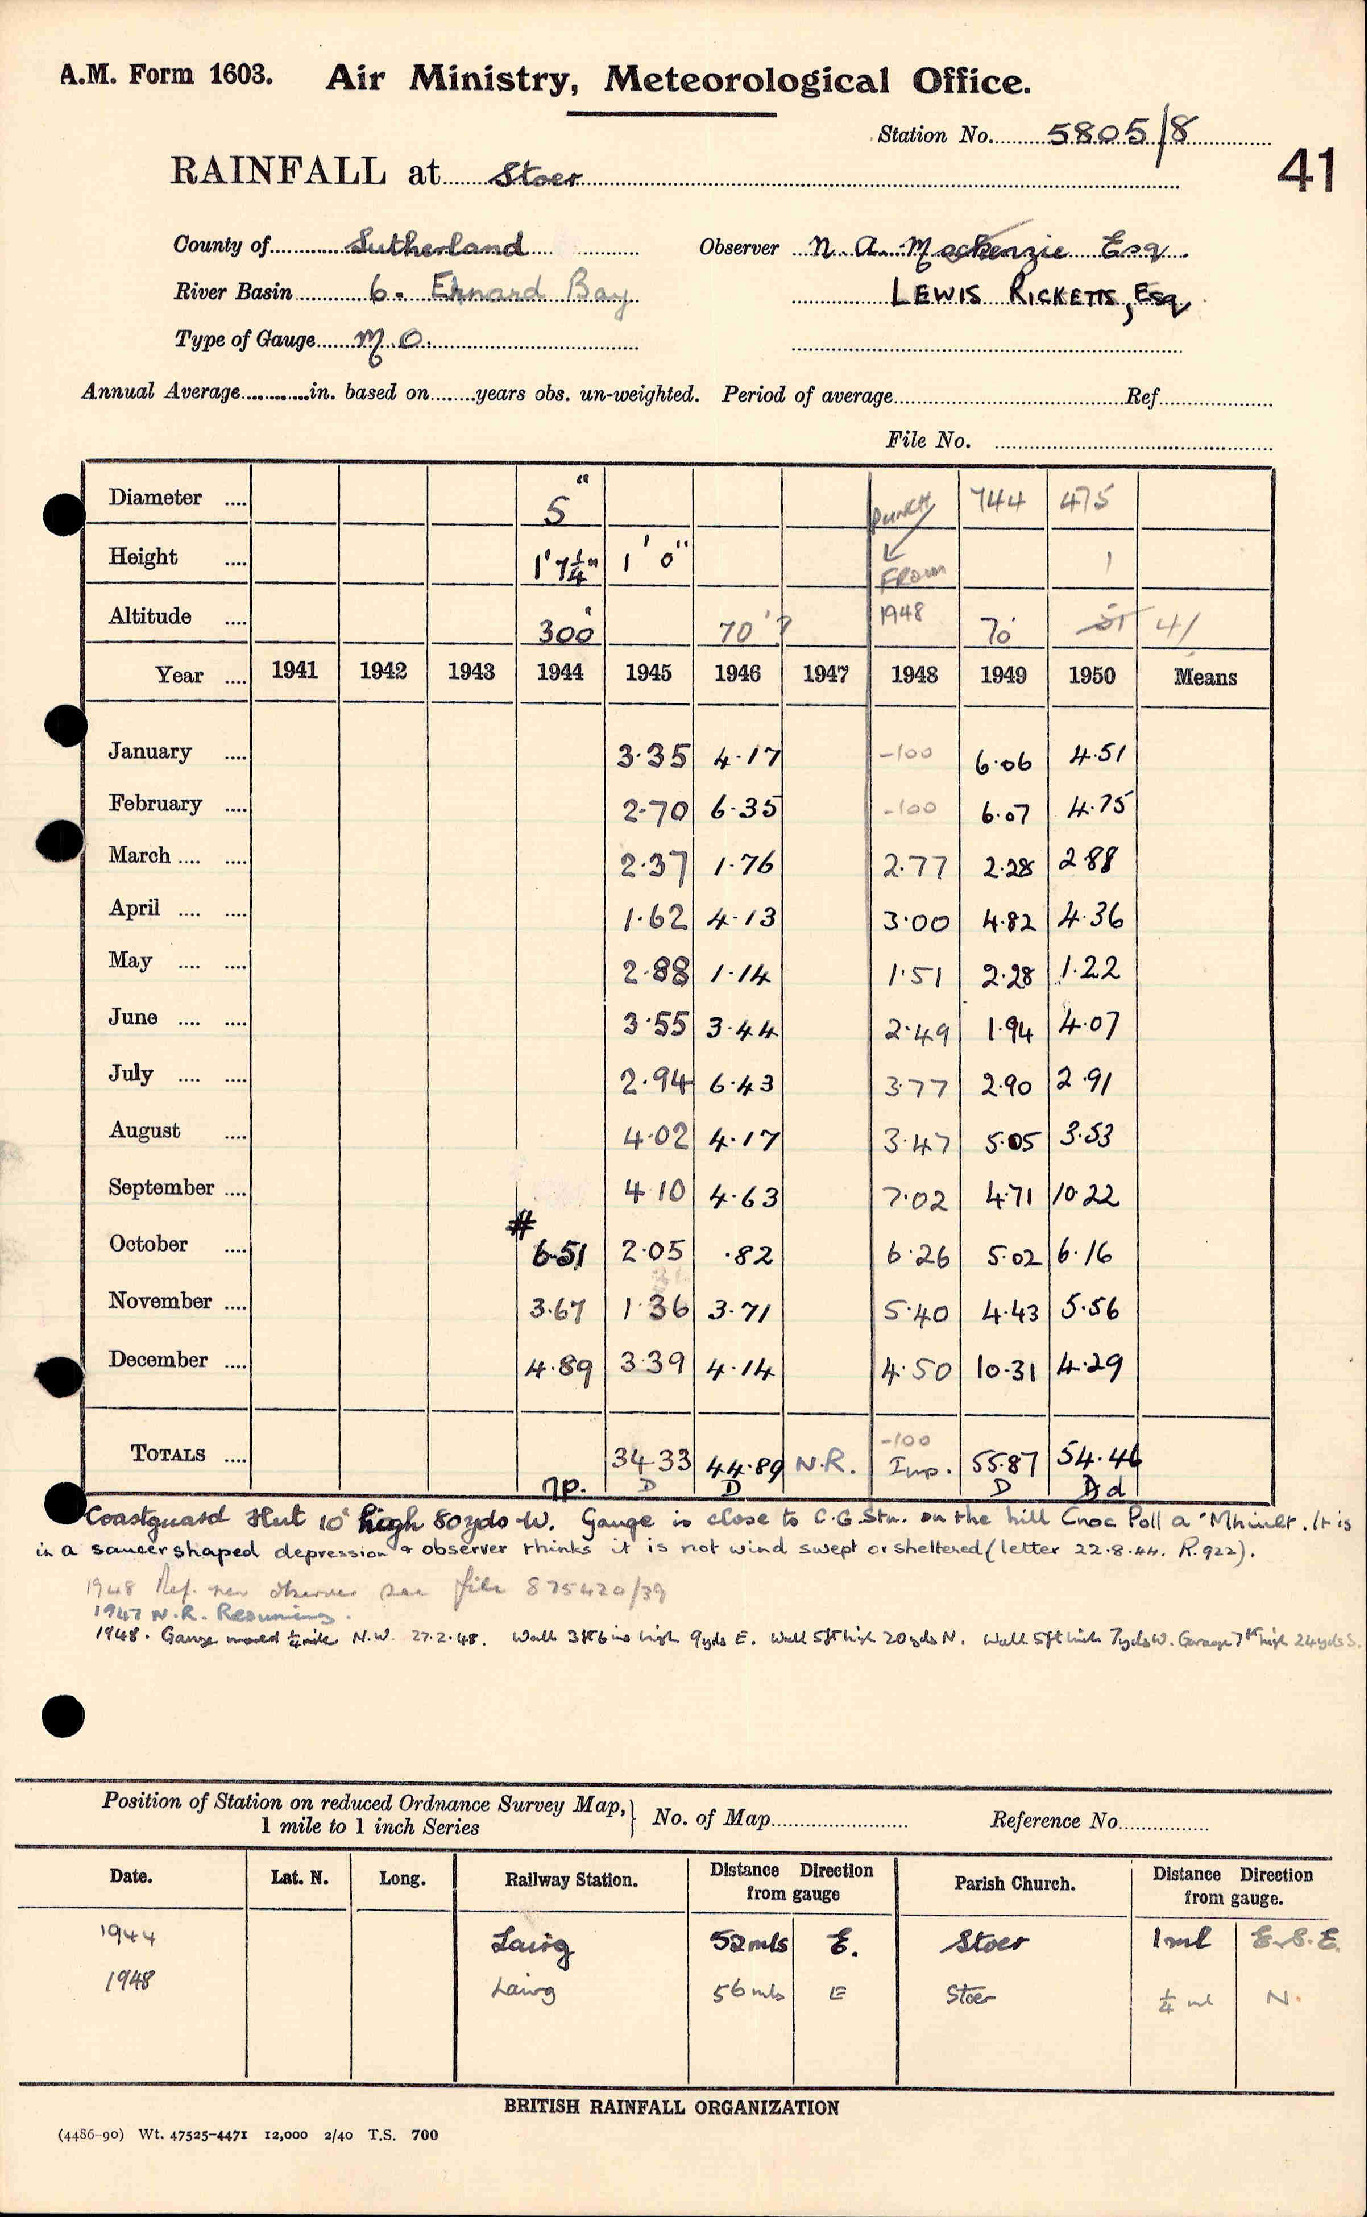 A.M. Form 1603. Air Ministry, Meteorological Office.
Station No. 5805/8
RAINFALL at Stoer
41
County of Sutherland Observer N. A. Mackenzie Esq.
River Basin 6. Ennard Bay LEWIS RICKETTS, Esq
Type of Gauge M.O.
Annual Average in. based on years obs. un-weighted. Period of average Ref
File No.
Diameter .... 5" PUNCH 744 475
Height .... 1' 7¼" 1' 0" FROM 1
Altitude .... 300' 70'? 1948 70' 41
Year .... 1941 1942 1943 1944 1945 1946 1947 1948 1949 1950 Means
January .... 3.35 4.17 -100 6.06 4.51
February .... 2.70 6.35 -100 6.07 4.75
March .... .... 2.37 1.76 2.77 2.28 2.88
April .... .... 1.62 4.13 3.00 4.82 4.36
May .... .... 2.88 1.14 1.51 2.28 1.22
June .... .... 3.55 3.44 2.49 1.94 4.07
July .... .... 2.94 6.43 3.77 2.90 2.91
August .... 4.02 4.17 3.47 5.05 3.53
September .... 4.10 4.63 7.02 4.71 10.22
#
October .... 6.51 2.05 .82 6.26 5.02 6.16
November .... 3.67 1.36 3.71 5.40 4.43 5.56
December .... 4.89 3.39 4.14 4.50 10.31 4.29
-100
TOTALS .... 34.33 44.89 N.R. Imp. 55.87 54.46
np. D D D D d
Coastguard Hut 10' high 80 yds W. Gauge is close to C.G. Stn. on the hill Cnoc Poll a' Mhuilt. It is
in a saucer shaped depression & observer thinks it is not wind swept or sheltered (letter 22.8.44. R.922).
1948 Ref. new observer see file 875420/39
1947 N.R. Resuming.
1948. Gauge moved ¼ mile N.W. 27.2.48. Wall 3ft 6 ins high 9yds E. Wall 5ft high 20yds N. Wall 5ft high 7yds W. Garage 7ft high 24yds S.
Position of Station on reduced Ordnance Survey Map,} No. of Map Reference No.
1 mile to 1 inch Series
Date. Lat. N. Long. Railway Station. Distance Direction from gauge Parish Church. Distance Direction from gauge.
1944 Lairg 52 mls E. Stoer 1 ml E.S.E.
1948 Lairg 56 mls E Stoer ¼ ml N.
BRITISH RAINFALL ORGANIZATION
(4486-90) Wt. 47525-4471 12,000 2/40 T.S. 700